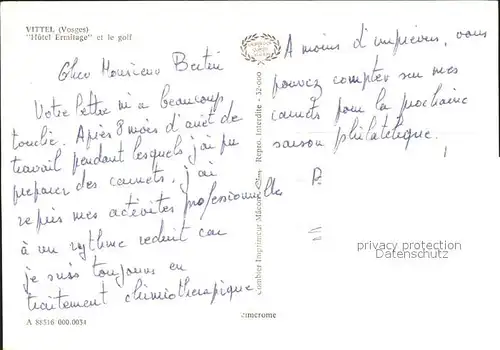 VITTEL (Vosges)
"Hôtel Ermitage" et le golf
Cher Monsieur Bertin
Votre lettre m'a beaucoup
touché. Après 8 mois d'arrêt de
travail pendant lesquels j'ai pu
preparer des carnets, j'ai
repris mes activités professionnelles
à un rythme reduit car
je suis toujours en
traitement chimiotherapique
A 88516 000.0034
Combier Imprimeur Mâcon Repro. Interdite - 32-000
cimcrome
A moins d'imprévu, vous
pouvez compter sur mes
carnets pour la prochaine
saison philatélique.
P.
privacy protection
Datenschutz